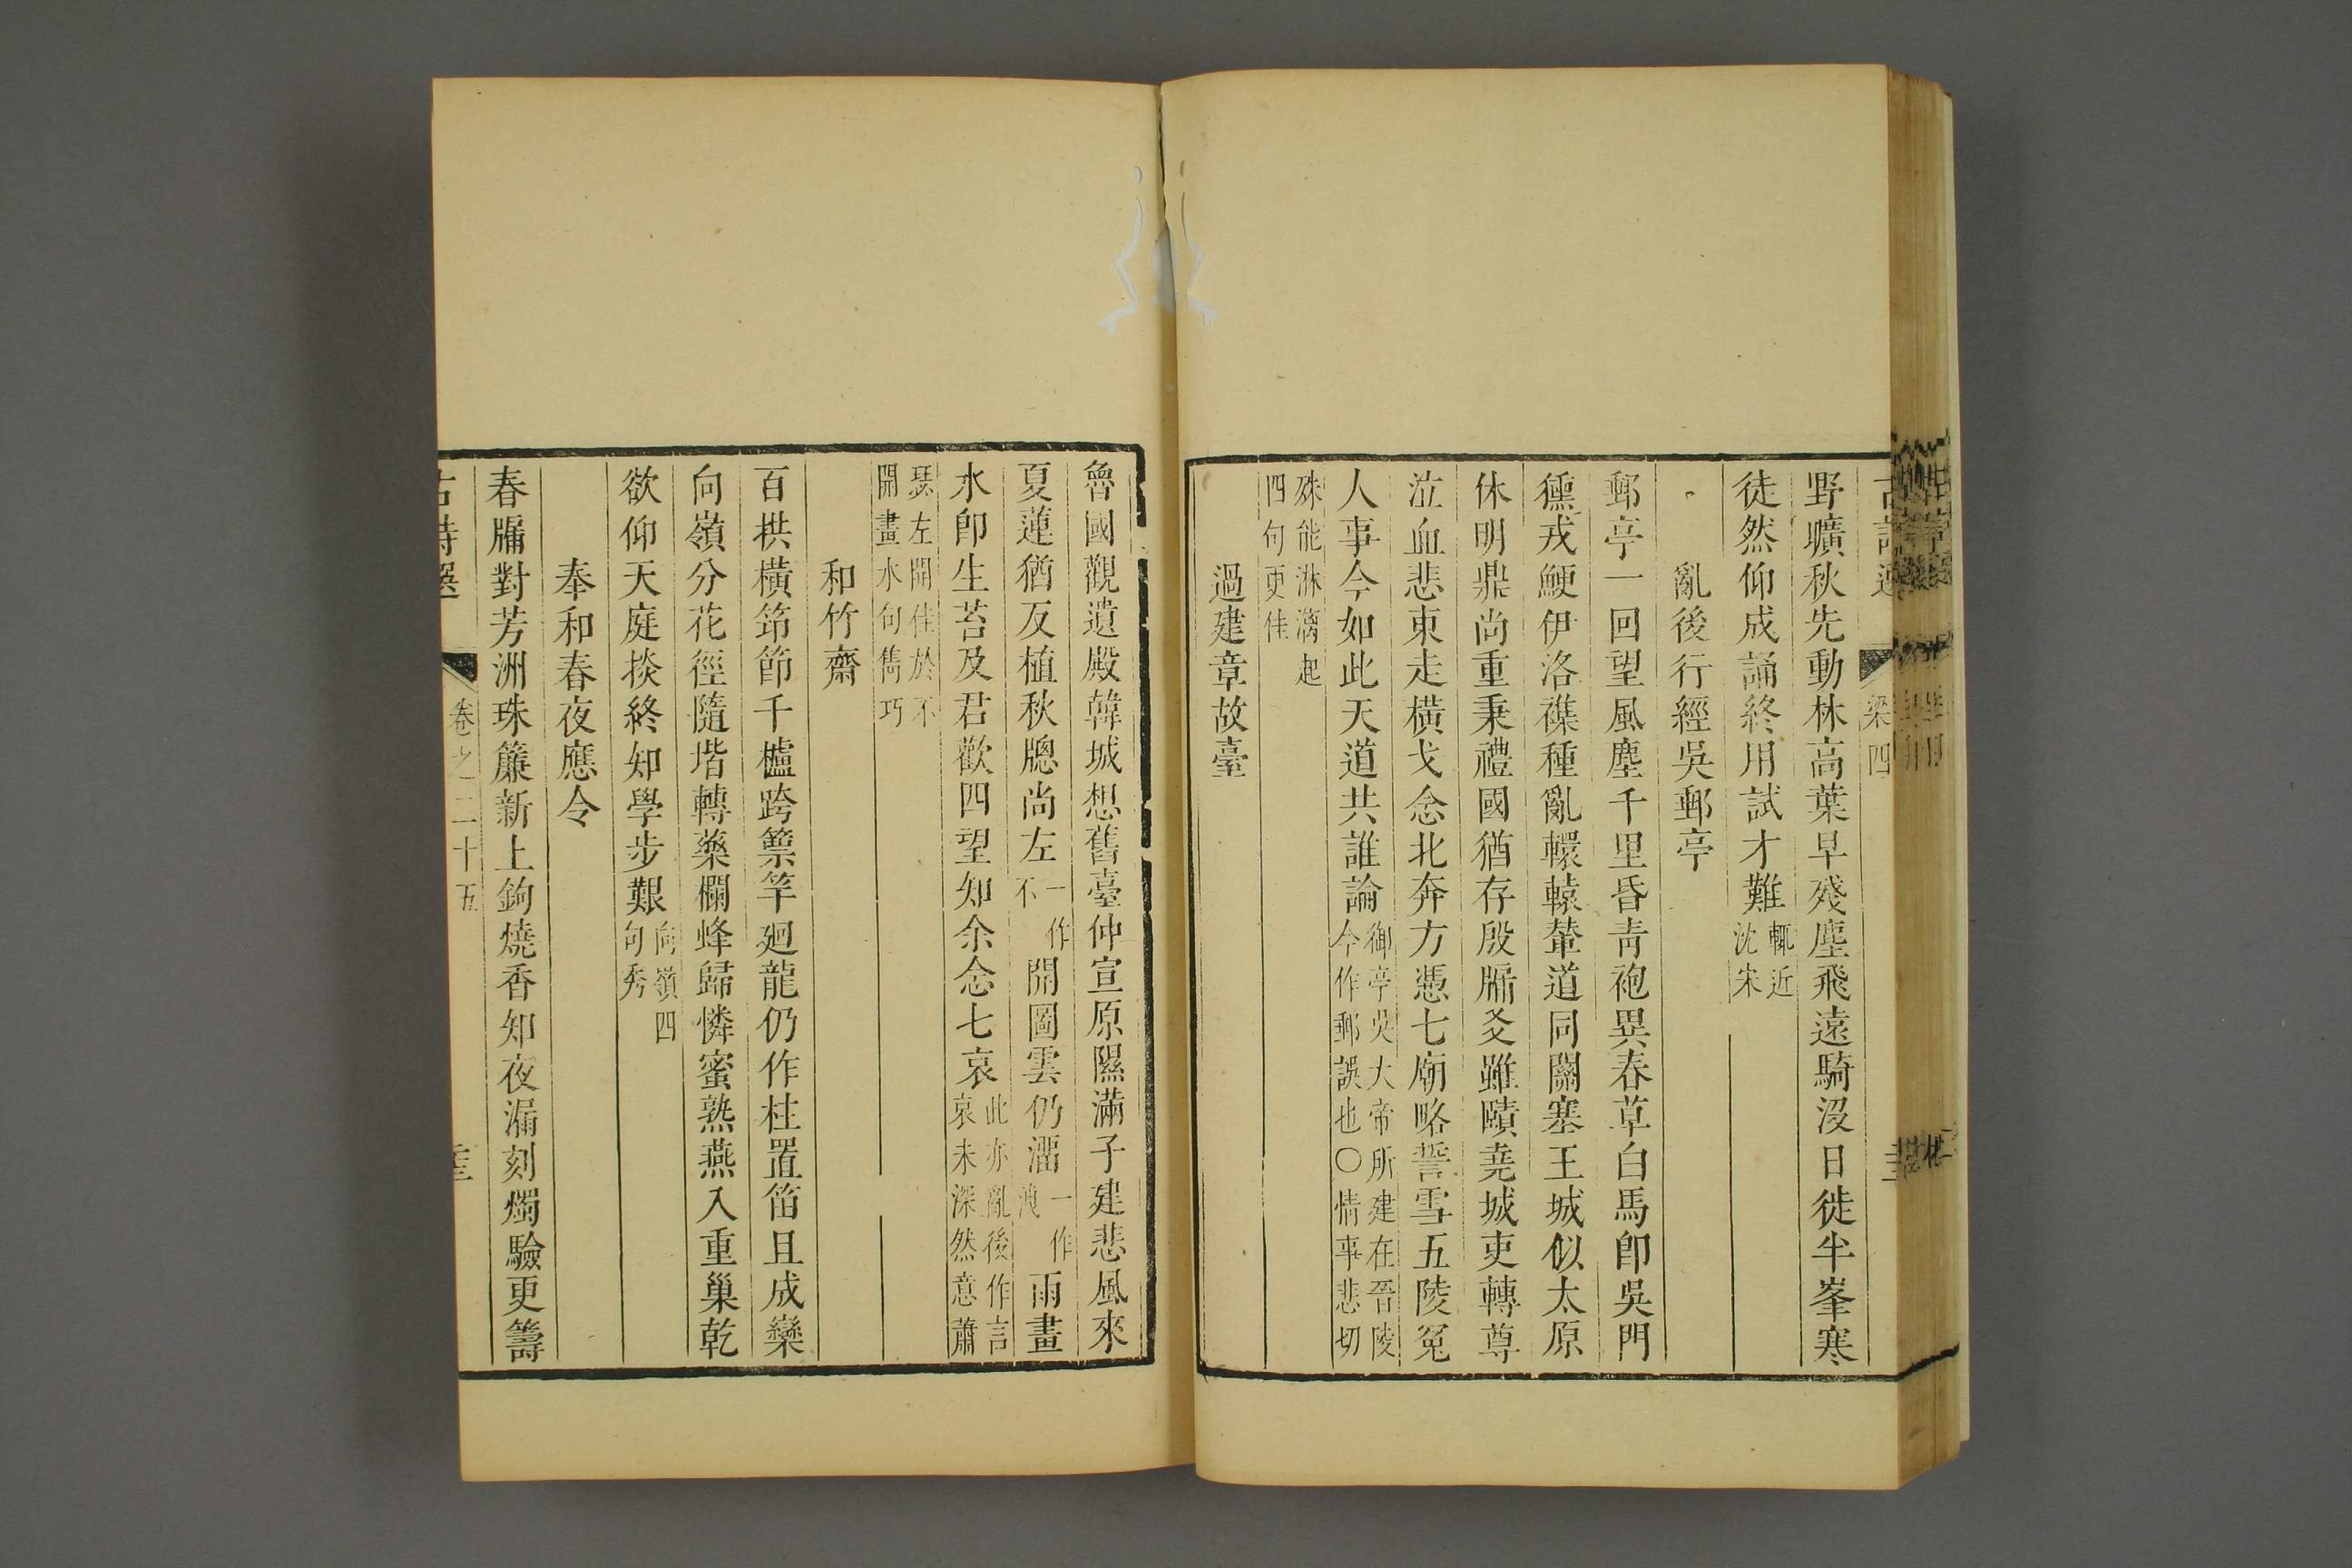 古詩選 梁四
野曠秋先動林高葉早殘塵飛遠騎沒日徙半峯寒
徒然仰成誦終用試才難輒近沈宋
亂後行經吳郵亭
郵亭一回望風塵千里昏青袍異春草白馬卽吳門
獯戎鯁伊洛襍種亂轘轅輦道同關塞王城似太原
休明鼎尚重秉禮國猶存殷牖爻雖賾堯城吏轉尊
泣血悲東走橫戈念北奔方憑七廟略誓雪五陵冤
人事今如此天道共誰論御亭吳大帝所建在晉陵今作郵誤也〇情事悲切
殊能淋漓起四句更佳
過建章故臺
魯國觀遺殿韓城想舊臺仲宣原隰滿子建悲風來
夏蓮猶反植秋牕尚左一作不開圖雲仍溜一作洩雨畫
水卽生苔及君歡四望知余念七哀此亦亂後作言哀未深然意蕭
瑟左開佳於不開畫水句儁巧
和竹齋
百栱橫筇節千櫨跨篻竿廻龍仍作柱置笛且成欒
向嶺分花徑隨堦轉藥欄蜂歸憐蜜熟燕入重巢乾
欲仰天庭掞終知學步艱向嶺四句秀
奉和春夜應令
春牖對芳洲珠簾新上鉤燒香知夜漏刻燭驗更籌
古詩選 卷之二十五